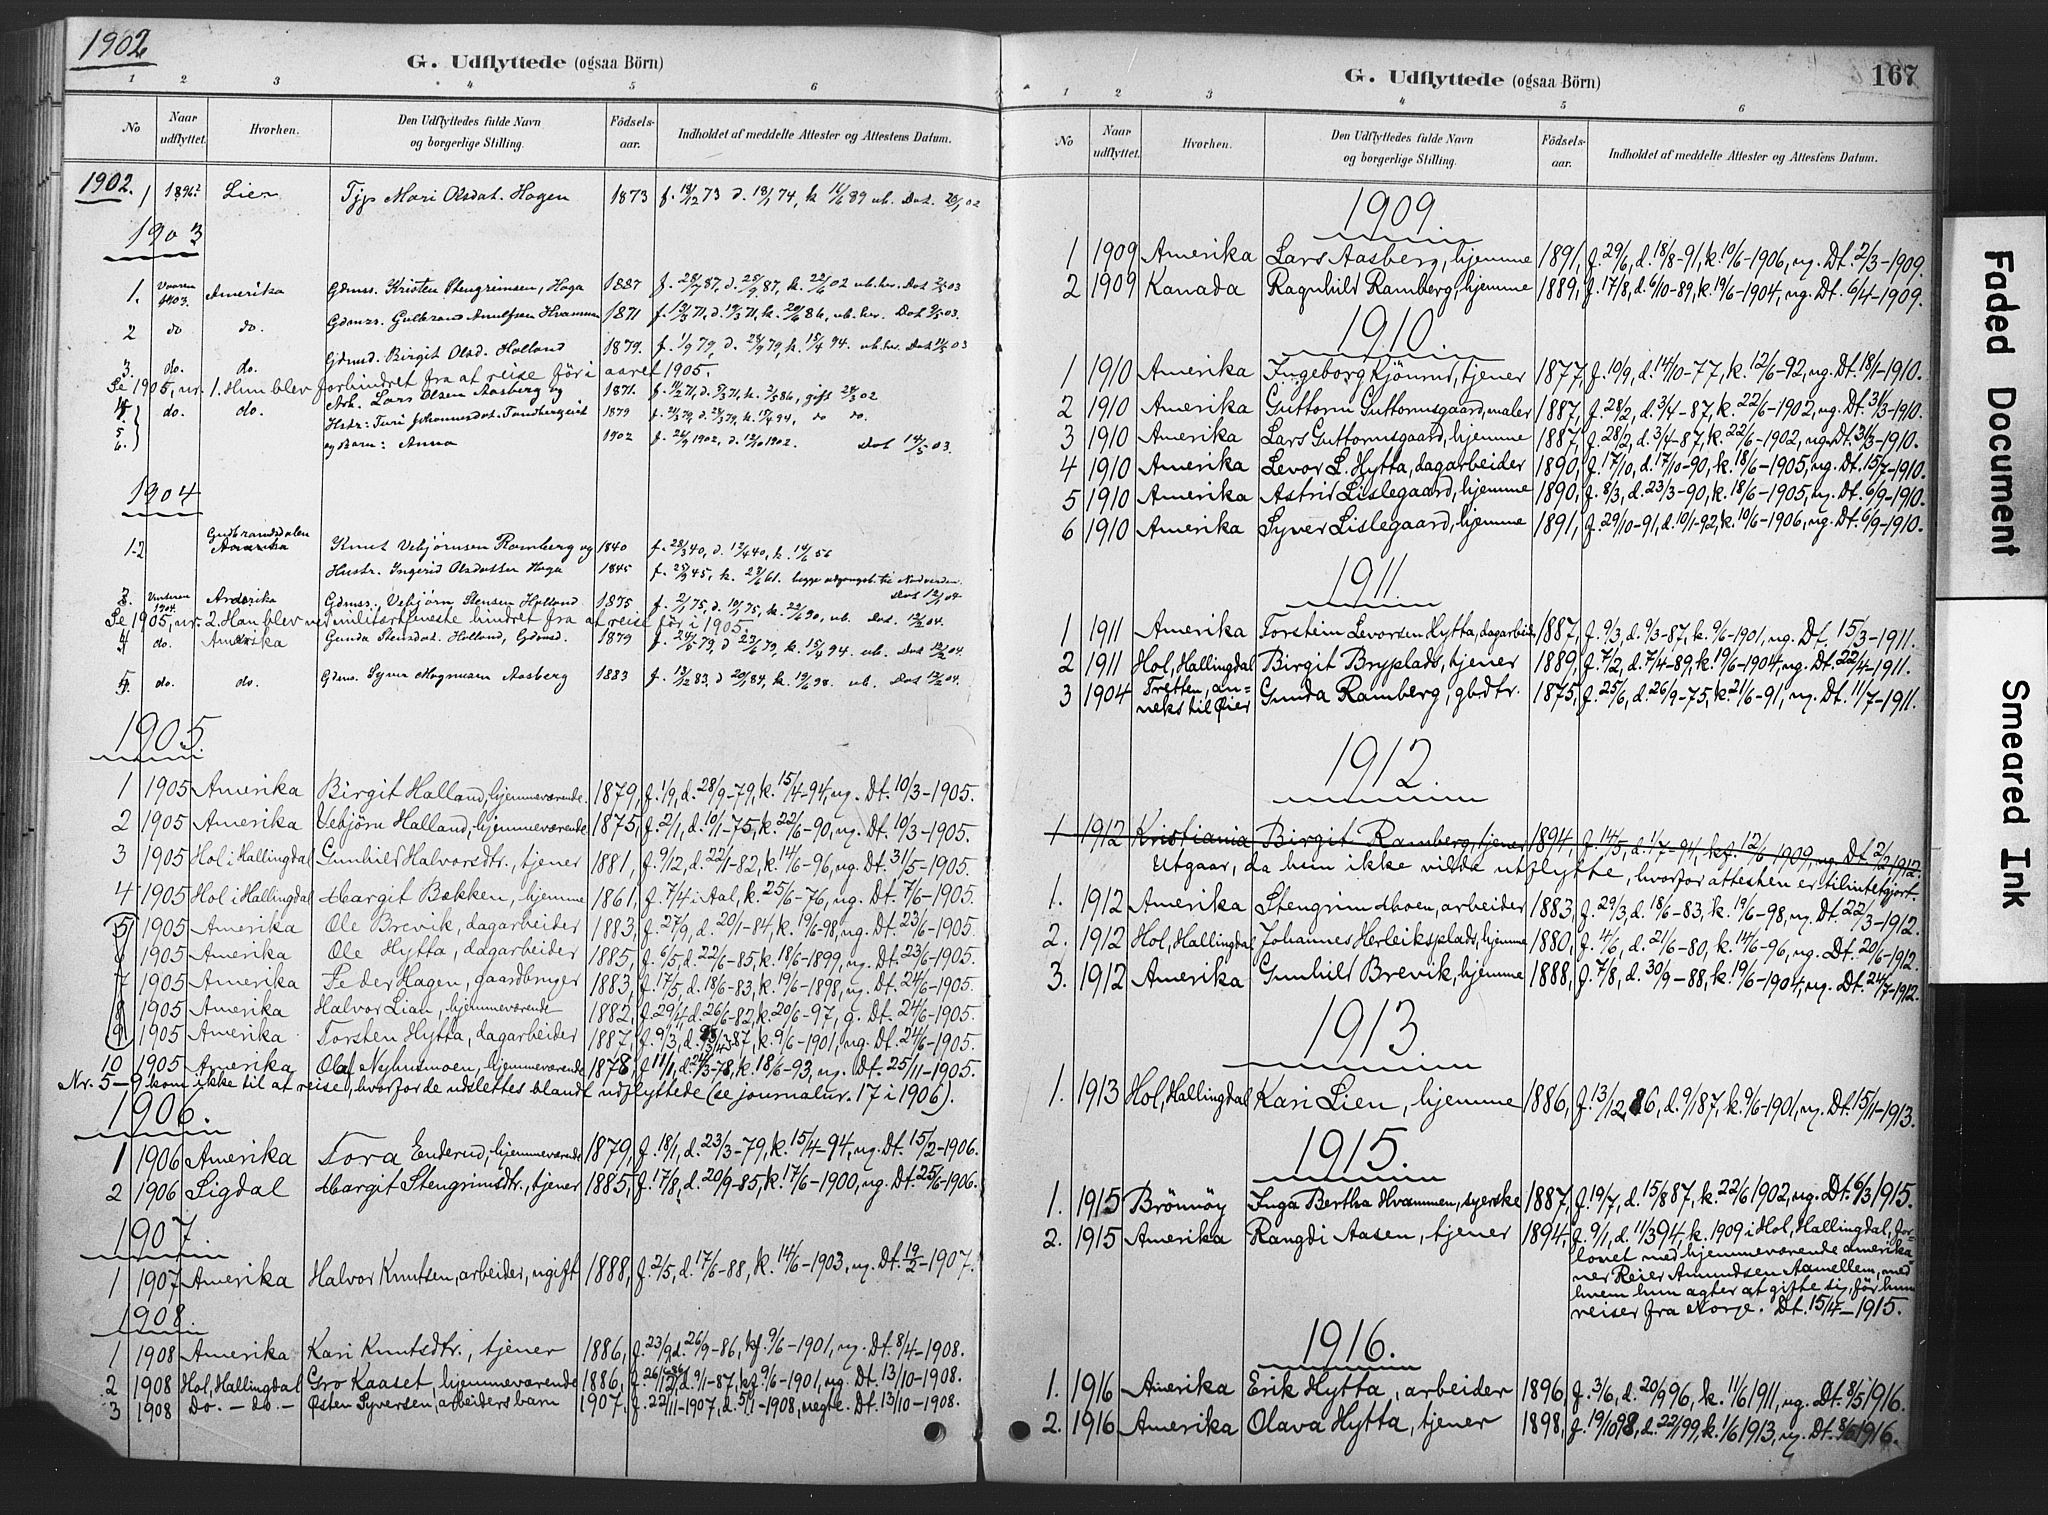 1902
G. Udflyttede (ogsaa Börn)
1 2 3 4 5 6
No Naar udflyttet. Hvorhen. Den Udflyttedes fulde Navn og borgerlige Stilling. Födsels-aar. Indholdet af meddelte Attester og Attestens Datum.
1902. 1 Lier Mari Olsdat. Hagen 1873 f. 18/12 73 d. 18/1 74, k.
1903
1. Vaaren 1903. Amerika Kristen Stengrimsen, Haga 1887
2 do do. 1871
3. do. do. Birgit Olsd. Holland 1879.
Se 1905, nr. 1. Hun blev forhindret fra at reise för i aaret 1905.
4. do. do. Lars Olsen Aasberg og 1871.
5 1879
6. og Barn: Anna 1902
1904
1-2 Gudbrandsdalen Amerika Knut Vebjörnsen Ramberg og 1840
Hustr. Ingerid Olsdatter Haga 1845
3. 1904. Amerika Vebjörn Stensen Holland 1875
Se 1905, nr. 2. Han blev ved militærtjeneste hindret fra at reise för i 1905.
4 do. Amerika Gunda Stensdat. Holland, 1879
5. do. do. Aasberg 1883
1905.
1 1905 Amerika Birgit Halland, hjemmeværende 1879, f. 1/9, d. 28/9-79, k. 15/4-94, ug. Dt. 10/3-1905.
2 1905 Amerika Vebjörn Halland, hjemmeværende 1875, f. 2/1, d. 10/1-75, k. 22/6-90, ug. Dt. 10/3-1905.
3 1905 Hol i Hallingdal Gunhild Halvorsdtr., tjener 1881, f. 9/12, d. 22/1-82, k. 14/6-96, ug. Dt. 31/5-1905.
4 1905 Hol i Hallingdal Margit Bækken, hjemme 1861, f. 7/4 i Aal, k. 25/6-76, ug. Dt. 7/6-1905.
5 1905 Amerika Ole Brevik, dagarbeider 1883, f. 27/9, d. 20/1-84, k. 19/6-98, ug. Dt. 23/6-1905.
6 1905 Amerika Ole Hytta, dagarbeider 1885, f. 6/5, d. 22/6-85, k. 18/6-1899, ug. Dt. 23/6-1905.
7 1905 Amerika Peder Hagen, gaardbruger 1883, f. 17/5 d. 18/6-83, k. 19/6-1898, ug. Dt. 24/6-1905.
8 1905 Amerika Halvor Lian, hjemmeværende 1882, f. 29/4, d. 26/6-82, k. 20/6-97, g. Dt. 24/6-1905.
9 1905 Amerika Torsten Hytta, dagarbeider 1887, f. 9/3, d. k. 9/6-1901, ug. Dt. 24/6-1905.
10 1905 Amerika Olaf Nyhusmoen, hjemmeværende 1878, f. 11/1, d. 24/3-78, k. 18/6-93, ug. Dt. 25/11-1905.
Nr. 5-9 kom ikke til at reise, hvorfor de udslettes blandt udflyttede (se journalnr. 17 i 1906).
1906.
1 1906 Amerika Tora Enderud, hjemmeværende 1879, f. 18/1, d. 23/3-79, k. 15/4-94, ug. Dt. 15/2-1906.
2 1906 Sigdal Margit Stengrimsdtr., tjener 1885, f. 17/8, d. 20/9-85, k. 17/6-1900, ug. Dt. 25/6-1906.
1907.
1 1907 Amerika Halvor Knutsen, arbeider, ugift 1888, f. 2/5, d. 17/6-88, k. 14/6-1903, ug. Dt. 19/2-1907.
1908.
1 1908 Amerika Kari Knutsdtr., tjener 1886, f. 23/9, d. 26/9-86, kf. 9/6-1901, ug. Dt. 8/4-1908.
2 1908 Hol, Hallingdal Gro Kaaset, hjemmeværende 1886, f. 26/12, d. 9/1-87, kf. 9/6-1901, ug. Dt. 13/10-1908.
3 1908 Do. - do. - Østen Syversen, arbeiders barn 1907, f. 22/11-1907, d. 5/1-1908, negte. Dt. 13/10-1908.
G. Udflyttede (ogsaa Börn) 167
1 2 3 4 5 6
No Naar udflyttet. Hvorhen. Den Udflyttedes fulde Navn og borgerlige Stilling. Födsels-aar. Indholdet af meddelte Attester og Attestens Datum.
1909.
1 1909 Amerika Lars Aasberg, hjemme 1891, f. 29/6, d. 18/8-91, k. 10/6-1906, ug. Dt. 2/3-1909.
2 1909 Kanada Ragnhild Ramberg, hjemme 1889, f. 17/8, d. 6/10-89, k. 19/6-1904, ug. Dt. 6/4-1909.
1910.
1 1910 Amerika Ingeborg Kjönnud, tjener 1877, f. 10/9, d. 14/10-77, k. 12/6-92, ug. Dt. 18/1-1910.
2 1910 Amerika Guttorm Guttormsgaard, maler 1887, f. 28/2, d. 3/4-87, k. 22/6-1902, ug. Dt. 31/3-1910.
3 1910 Amerika Lars Guttormsgaard, hjemme 1887, f. 28/2, d. 3/4-87, k. 22/6-1902, ug. Dt. 31/3-1910.
4 1910 Amerika Levor L. Hytta, dagarbeider 1890, f. 17/10, d. 17/10-90, k. 18/6-1905, ug. Dt. 15/7-1910.
5 1910 Amerika Astrid Lislegaard, hjemme 1890, f. 8/3, d. 23/3-90, k. 18/6-1905, ug. Dt. 6/9-1910.
6 1910 Amerika Syver Lislegaard, hjemme 1891, f. 29/10-91, d. 10/1-92, k. 10/6-1906, ug. Dt. 6/9-1910.
1911.
1 1911 Amerika Torstein Levorsen Hytta, dagarbeid. 1887, f. 9/3, d. 9/3-87, k. 9/6-1901, ug. Dt. 15/3-1911.
2 1911 Hol, Hallingdal Birgit Bryplads, tjener 1889, f. 7/2, d. 7/4-89, k. 19/6-1904, ug. Dt. 22/4-1911.
3 1904 Tretten, anneks til Øier Gunda Ramberg, gbdtr. 1875, f. 25/6, d. 26/9-75, k. 21/6-91, ug. Dt. 11/7-1911.
1912.
1 1912 Kristiania Birgit Ramberg, tjener 1894, f. 14/5, d. 1/7-94, kf. 12/6-1909, ug. Dt. 2/2 1912.
Utgaar, da hun ikke vilde utflytte, hvorfor attesten er tilintetgjort.
1. 1912 Amerika Stengrim dhoen, arbeider 1883, f. 29/3, d. 18/6-83, k. 19/6-98, ug. Dt. 22/3-1912.
2. 1912 Hol, Hallingdal Johannes Herleiksplads, hjemme 1880, f. 4/6, d. 21/6-80, k. 14/6-96, ug. Dt. 20/6-1912.
3. 1912 Amerika Gunhild Brevik, hjemme 1888, f. 7/8, d. 30/9-88, k. 19/6-1904, ug. Dt. 24/7-1912.
1913.
1. 1913 Hol, Hallingdal Kari Lien, hjemme 1886, f. 13/12 86, d. 9/1 87, k. 9/6-1901, ug. Dt. 15/11-1913.
1915.
1. 1915 Brönnöy Inga Bertha Hvammen, syerske 1887, f. 19/7, d. 15/8 87, k. 22/6 1902, ug. Dt. 6/3 1915.
2. 1915 Amerika Rangdi Aasen, tjener 1894, f. 9/1, d. 11/3 94, k. 1909 i Hol, Hallingdal, for-
lovet med hjemmeværende amerika-
ner Reier Amundsen Aamellem, med
hvem hun agter at gifte sig, för hun
reiser fra Norge. Dt. 15/4-1915.
1916.
1. 1916 Amerika Erik Hytta, arbeider 1896, f. 3/6, d. 20/9 96, k. 11/6 1911, ug. Dt. 8/5 1916.
2. 1916 Amerika Olava Hytta, tjener 1898, f. 19/10 98, d. 22/1 99, k. 1/6 1913, ug. Dt. 8/5 1916.
Faded Document
Smeared Ink